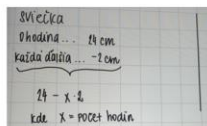 sviečka
0 hodina ... 24 cm
každá ďalšia ... -2 cm
24 - x · 2
kde x = počet hodín